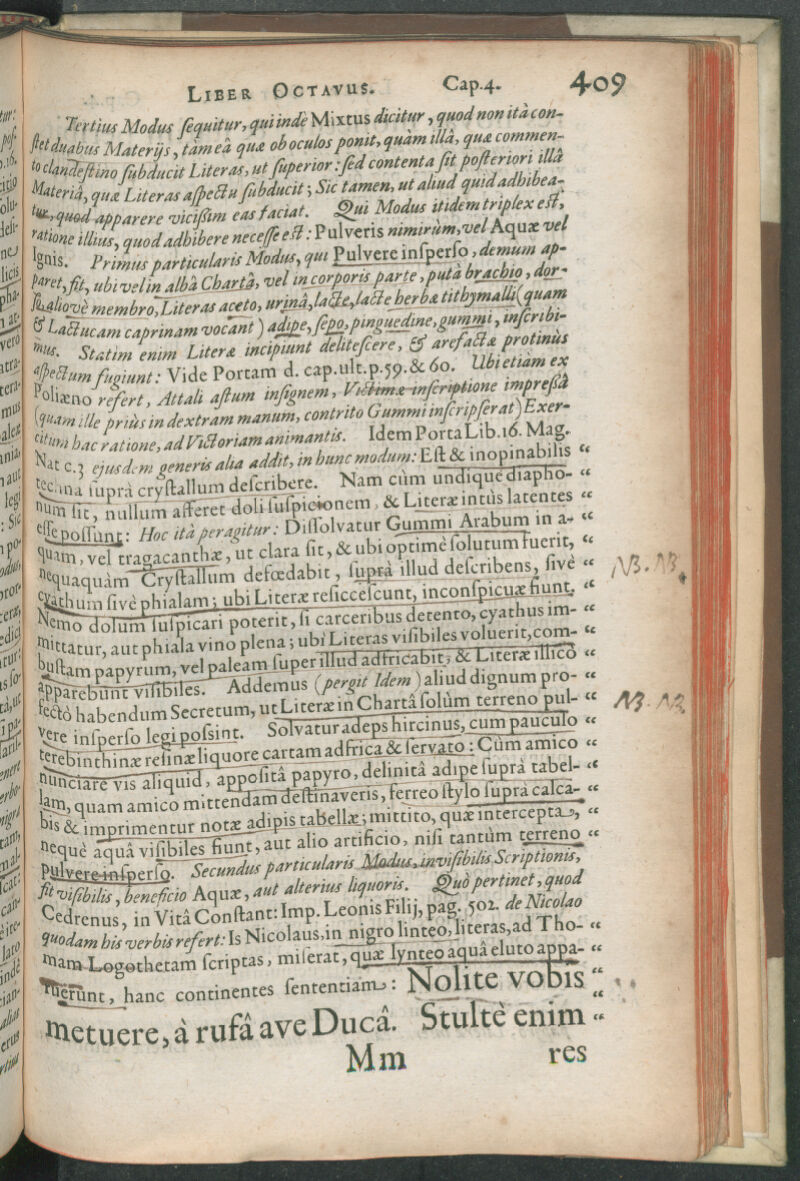 LIBER OCTAVUS. Cap.4. 409
Tertius Modus ſequitur, qui indè Mixtus dicitur, quod non ità con-
ſtet duabus Materijs, tam eâ quæ ob oculos ponit, quàm illâ, quæ commen-
to clandeſtino ſubducit Literas, ut ſuperior: ſed contenta ſit poſteriori illâ
Materiâ, quæ Literas aſpectu ſubducit; Sic tamen, ut aliud quid adhibea-
tur, quod apparere viciſſim eas faciat. Qui Modus itidem triplex est,
ratione illius, quod adhibere neceſſe est: Pulveris nimirùm, vel Aquæ vel
Ignis. Primus particularis Modus, qui Pulvere inſperſo, demum ap-
paret, fit, ubi vel in albâ Chartâ, vel in corporis parte, putà brachio, dor-
ſu, aliovè membro, Literas aceto, urinâ, lacte, lacte herbæ tithymalli (quam
& Lactucam caprinam vocant) adipe, ſepo, pinguedine, gummi, inſcribi-
mus. Statim enim Literæ incipiunt deliteſcere, & arefactæ protinùs
aſpectum fugiunt: Vide Portam d. cap.ult.p.59.& 60. Ubi etiam ex
Poliæno refert, Attali aſtum inſignem, Victimæ inſcriptione impreſſâ
(quam ille priùs in dextram manum, contrito Gummi inſcripſerat) Exer-
citum hac ratione, ad Victoriam animantis. Idem Porta Lib.16. Mag.
Nat c.3 ejusdem generis alia addit, in hunc modum: Eſt & inopinabilis “
techna ſuprà cryſtallum deſcribere. Nam cùm undique diapho- “
num ſit, nullum afferet doli ſuſpicionem, & Literæ intùs latentes “
eſſe poſſunt: Hoc ità peragitur: Diſſolvatur Gummi Arabum in a- “
quam, vel tragacanthæ, ut clara ſit, & ubi optimè ſolutum fuerit, “
nequaquàm Cryſtallum defœdabit, ſuprà illud deſcribens, ſivè “ NB. NB.
cyathum ſivè phialam; ubi Literæ reſicceſcunt, inconſpicuæ fiunt, “
Nemo dolum ſuſpicari poterit, ſi carceribus detento, cyathus im- “
mittatur, aut phiala vino plena; ubi Literas viſibiles voluerit, com- “
buſtam papyrum, vel paleam ſuper illud adfricabit, & Literæ illicò “
apparebunt viſibiles. Addemus (pergit Idem) aliud dignum pro- “
fectò habendum Secretum, ut Literæ in Chartâ ſolùm terreno pul- “ NB. NB
vere inſperſo legi poſſint. Solvatur adeps hircinus, cum pauculo “
terebinthinæ reſinæ liquore cartam adfrica & ſervato: Cùm amico “
nunciare vis aliquid, appoſitâ papyro, delinitâ adipe ſuprà tabel- “
lam, quam amico mittendam deſtinaveris, ferreo ſtylo ſuprà calca- “
bis & imprimentur notæ adipis tabellæ; mittito, quæ intercepta, “
nequè aquâ viſibiles fiunt, aut alio artificio, niſi tantùm terreno “
pulvere inſperſo. Secundus particularis Modus, inviſibilis Scriptionis,
fit viſibilis, beneficio Aquæ, aut alterius liquoris. Quò pertinet, quod
Cedrenus, in Vitâ Conſtant: Imp. Leonis Filij, pag. 502. de Nicolao
quodam his verbis refert: Is Nicolaus, in nigro linteo, literas, ad Tho- “
mam Logothetam ſcriptas, miſerat, quæ lynteo aquâ eluto appa- “
ruerunt, hanc continentes ſententiam: Nolite vobis “
metuere, à rufâ ave Ducâ. Stultè enim “
Mm res